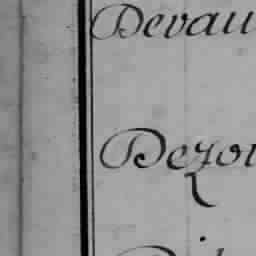 Devau
Dezot